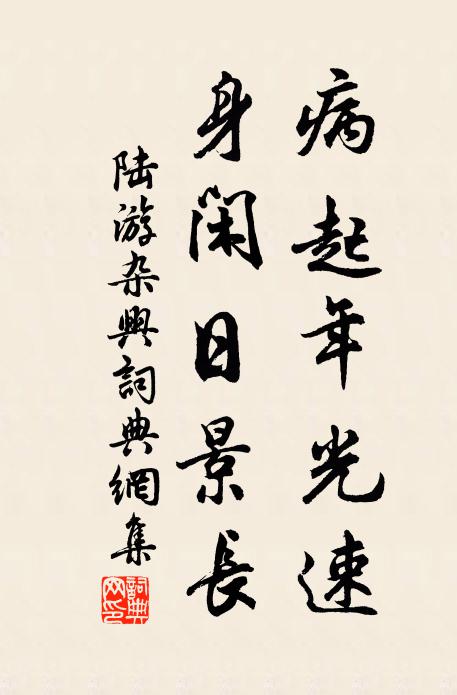 病起年光速
身閑日景長
陸游杂興詞典網集
詞典网印